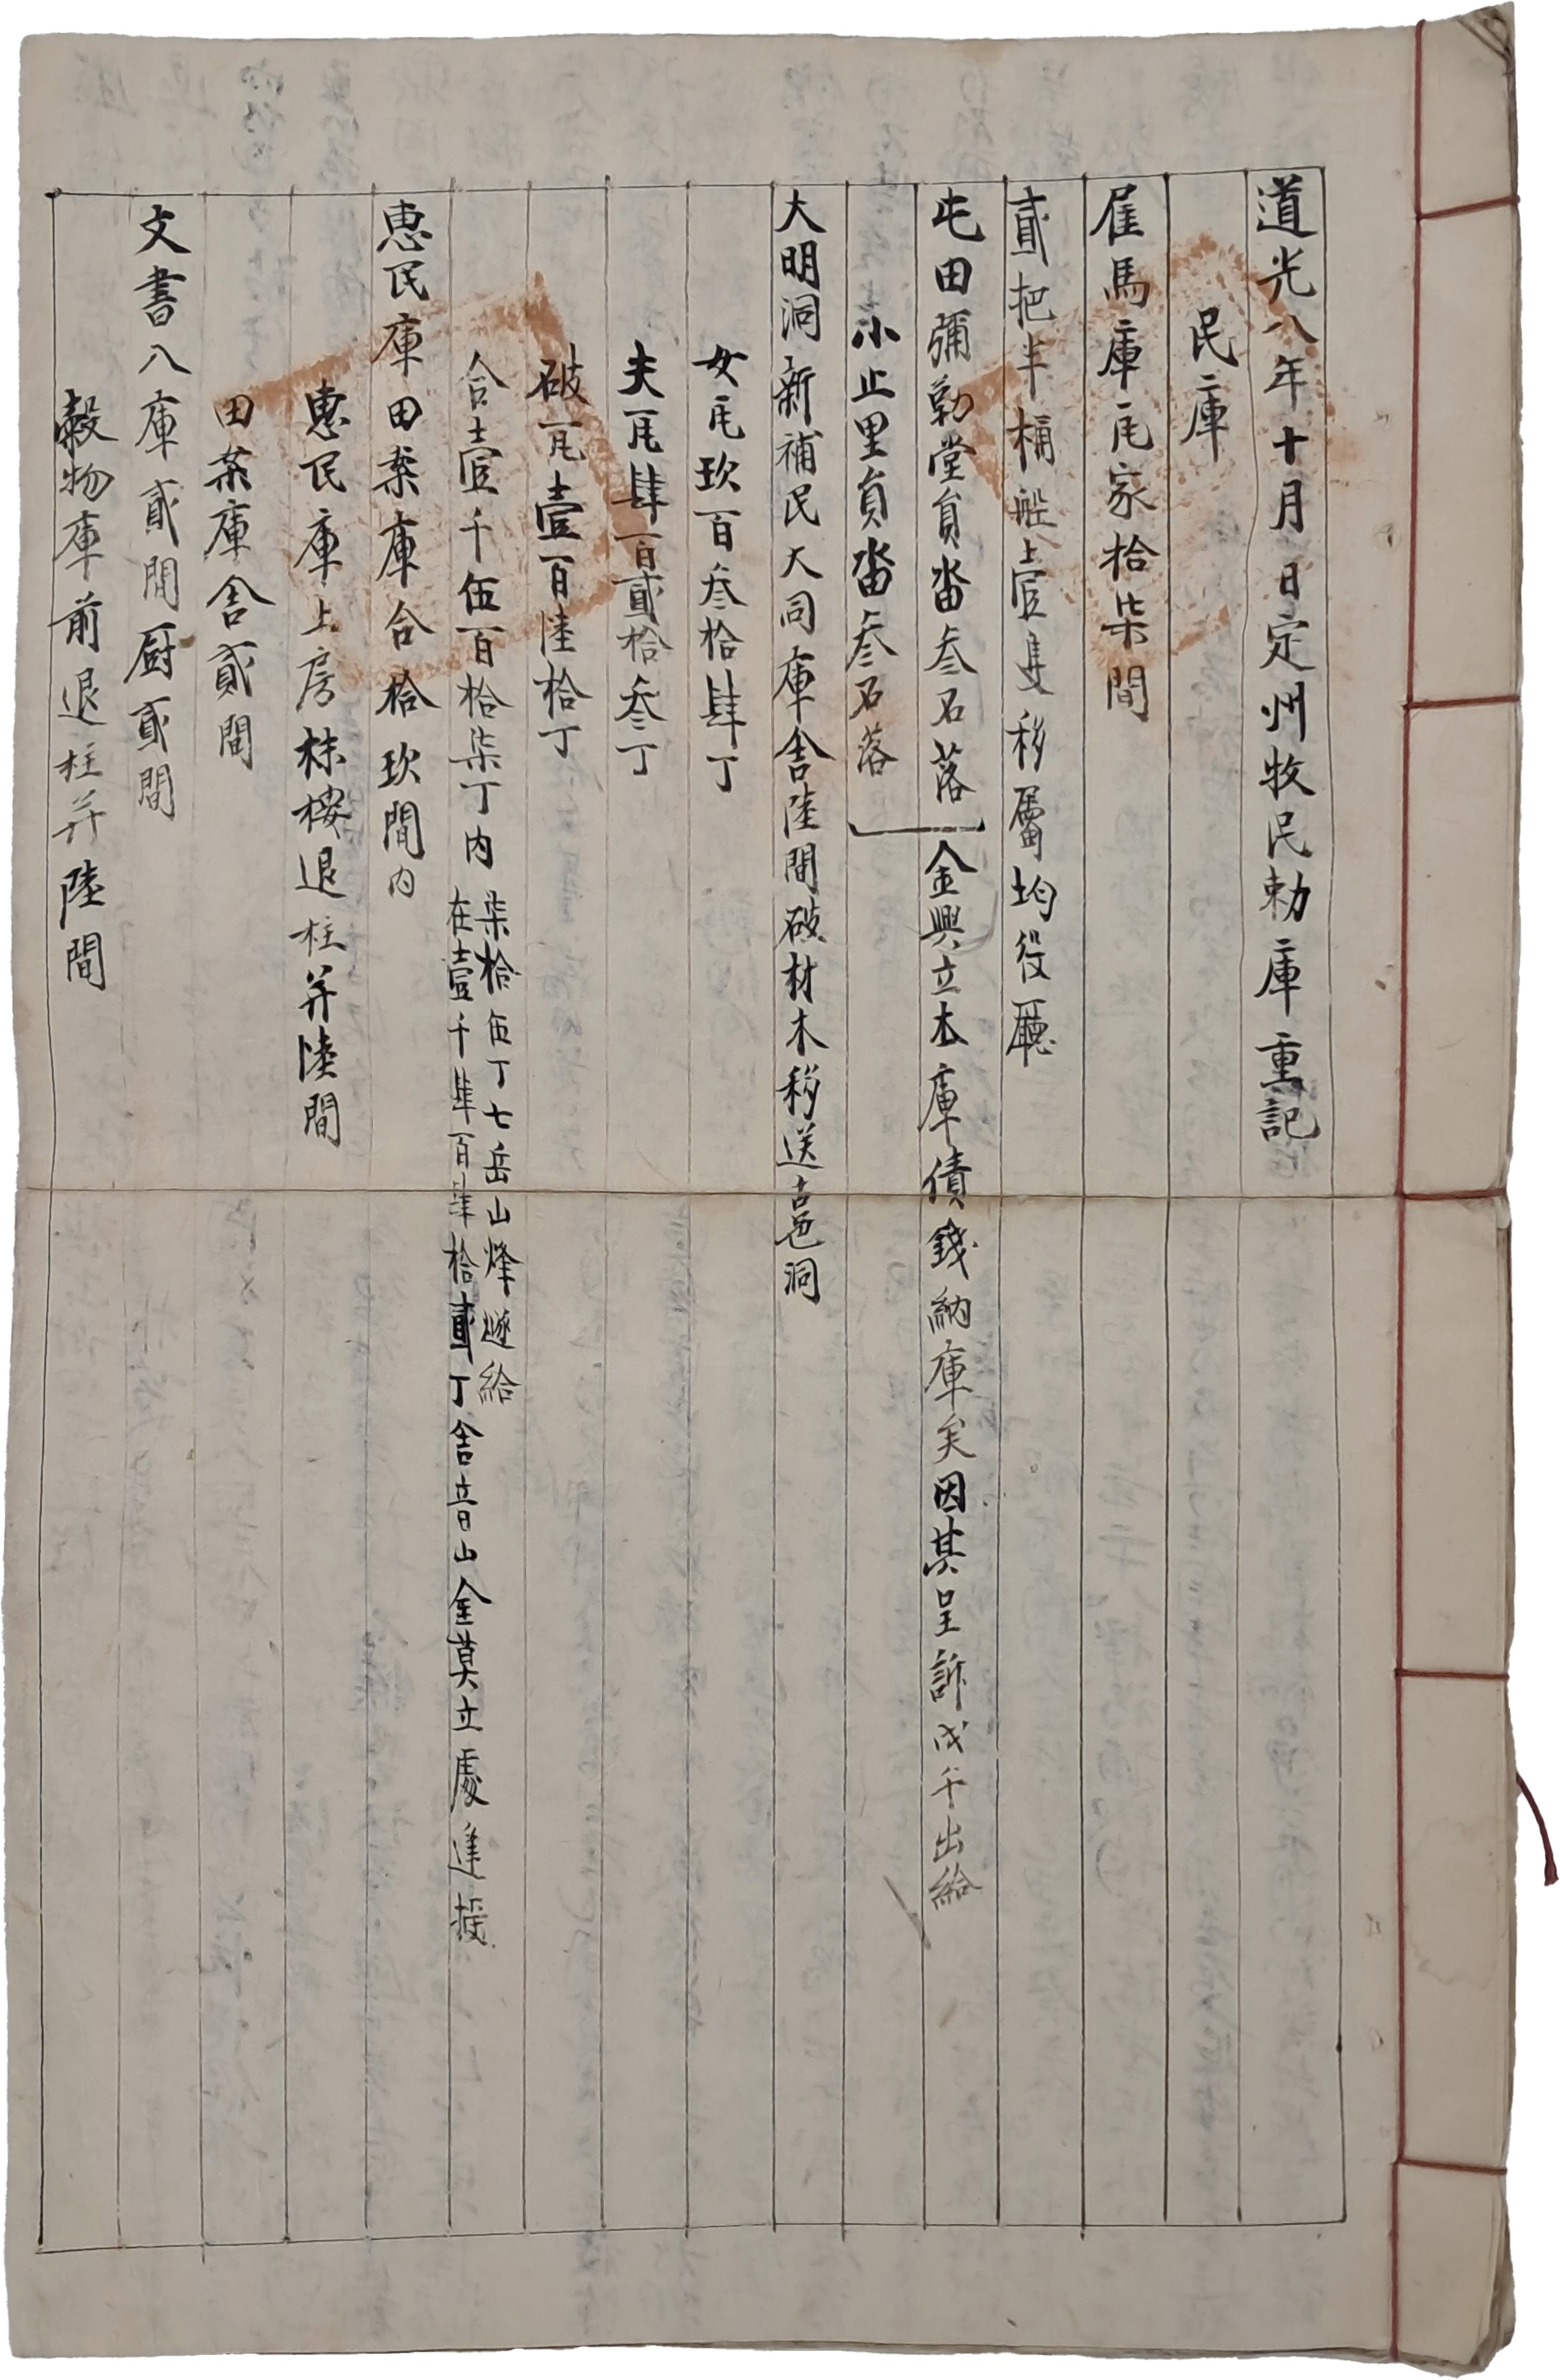 道光八年十月 日定州牧民勅庫重記
民庫
雇馬庫瓦家拾柒間
貳把半桶船壹隻移屬均役廳
屯田彌勒堂員畓叁石落 金興立本庫債錢納庫矣因其呈訴戊子出給
小止里員畓叁石落
大明洞新補民大同庫舍陸間破材木移送古邑洞
女瓦玖百叁拾肆丁
夫瓦肆百貳拾叁丁
破瓦壹百陸拾丁
合壹千伍百拾柒丁內 柒拾伍丁七岳山烽燧給
在壹千肆百肆拾貳丁舍音山金莫立處逢授
惠民庫田案庫合拾玖間內
惠民庫上房抹樓退柱并陸間
田案庫舍貳間
文書八庫貳間厨貳間
穀物庫前退柱并陸間